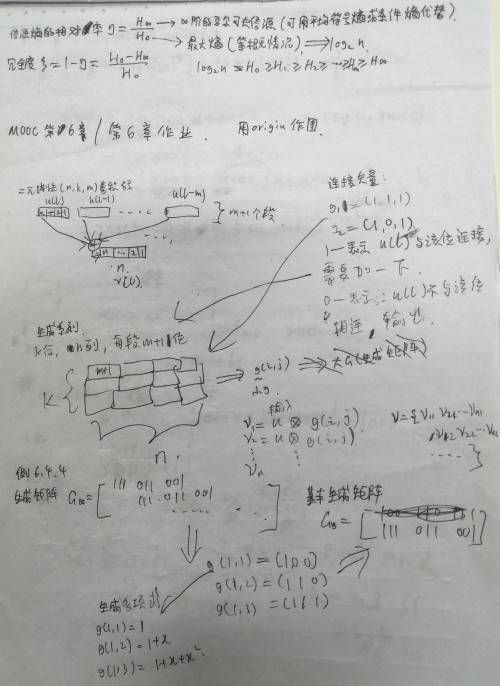 信源熵的相对率 η = H∞/H0 → ∞阶的多次可夫信源 (可用平均符号熵或条件熵代替).
→ 最大熵 (等概况情况), ⇒ log2 n.
冗余度 ξ = 1-η = (H0-H∞)/H0
log2 n = H0 ≥ H1 ≥ H2 ≥ … ≥ Hm ≥ H∞
MOOC 第6章 / 第6章作业. 用origin作图.
二元线性 (n, k, m) 卷积码
u(l) u(l-1) …. u(l-m)
} m+1个段
n.
v(l).
连接矢量:
g1 = (1, 1, 1)
g2 = (1, 0, 1)
1—表示 u(l) 与该位连接,
需要加一下.
0—表示: u(l) 不与该位
相连, 输出.
生成系列.
k行, n列, 每段m+1位
k { m+1
n.
⇒ g(i,j)
输入
v1 = u ⊗ g(i,j)
v2 = u ⊗ g(i,j)
⋮
vn
v = {v11 v21 … vn1
v12 v22 … vn2
…. }
例6.4.4
生成矩阵 G∞ = [ 111 011 001
111 011 001
…… ]
基本生成矩阵
GB = [ 111 011 001 ]
g(1,1) = (100)
g(1,2) = (110)
g(1,3) = (111)
生成多项式
g(1,1) = 1
g(1,2) = 1+x
g(1,3) = 1+x+x²